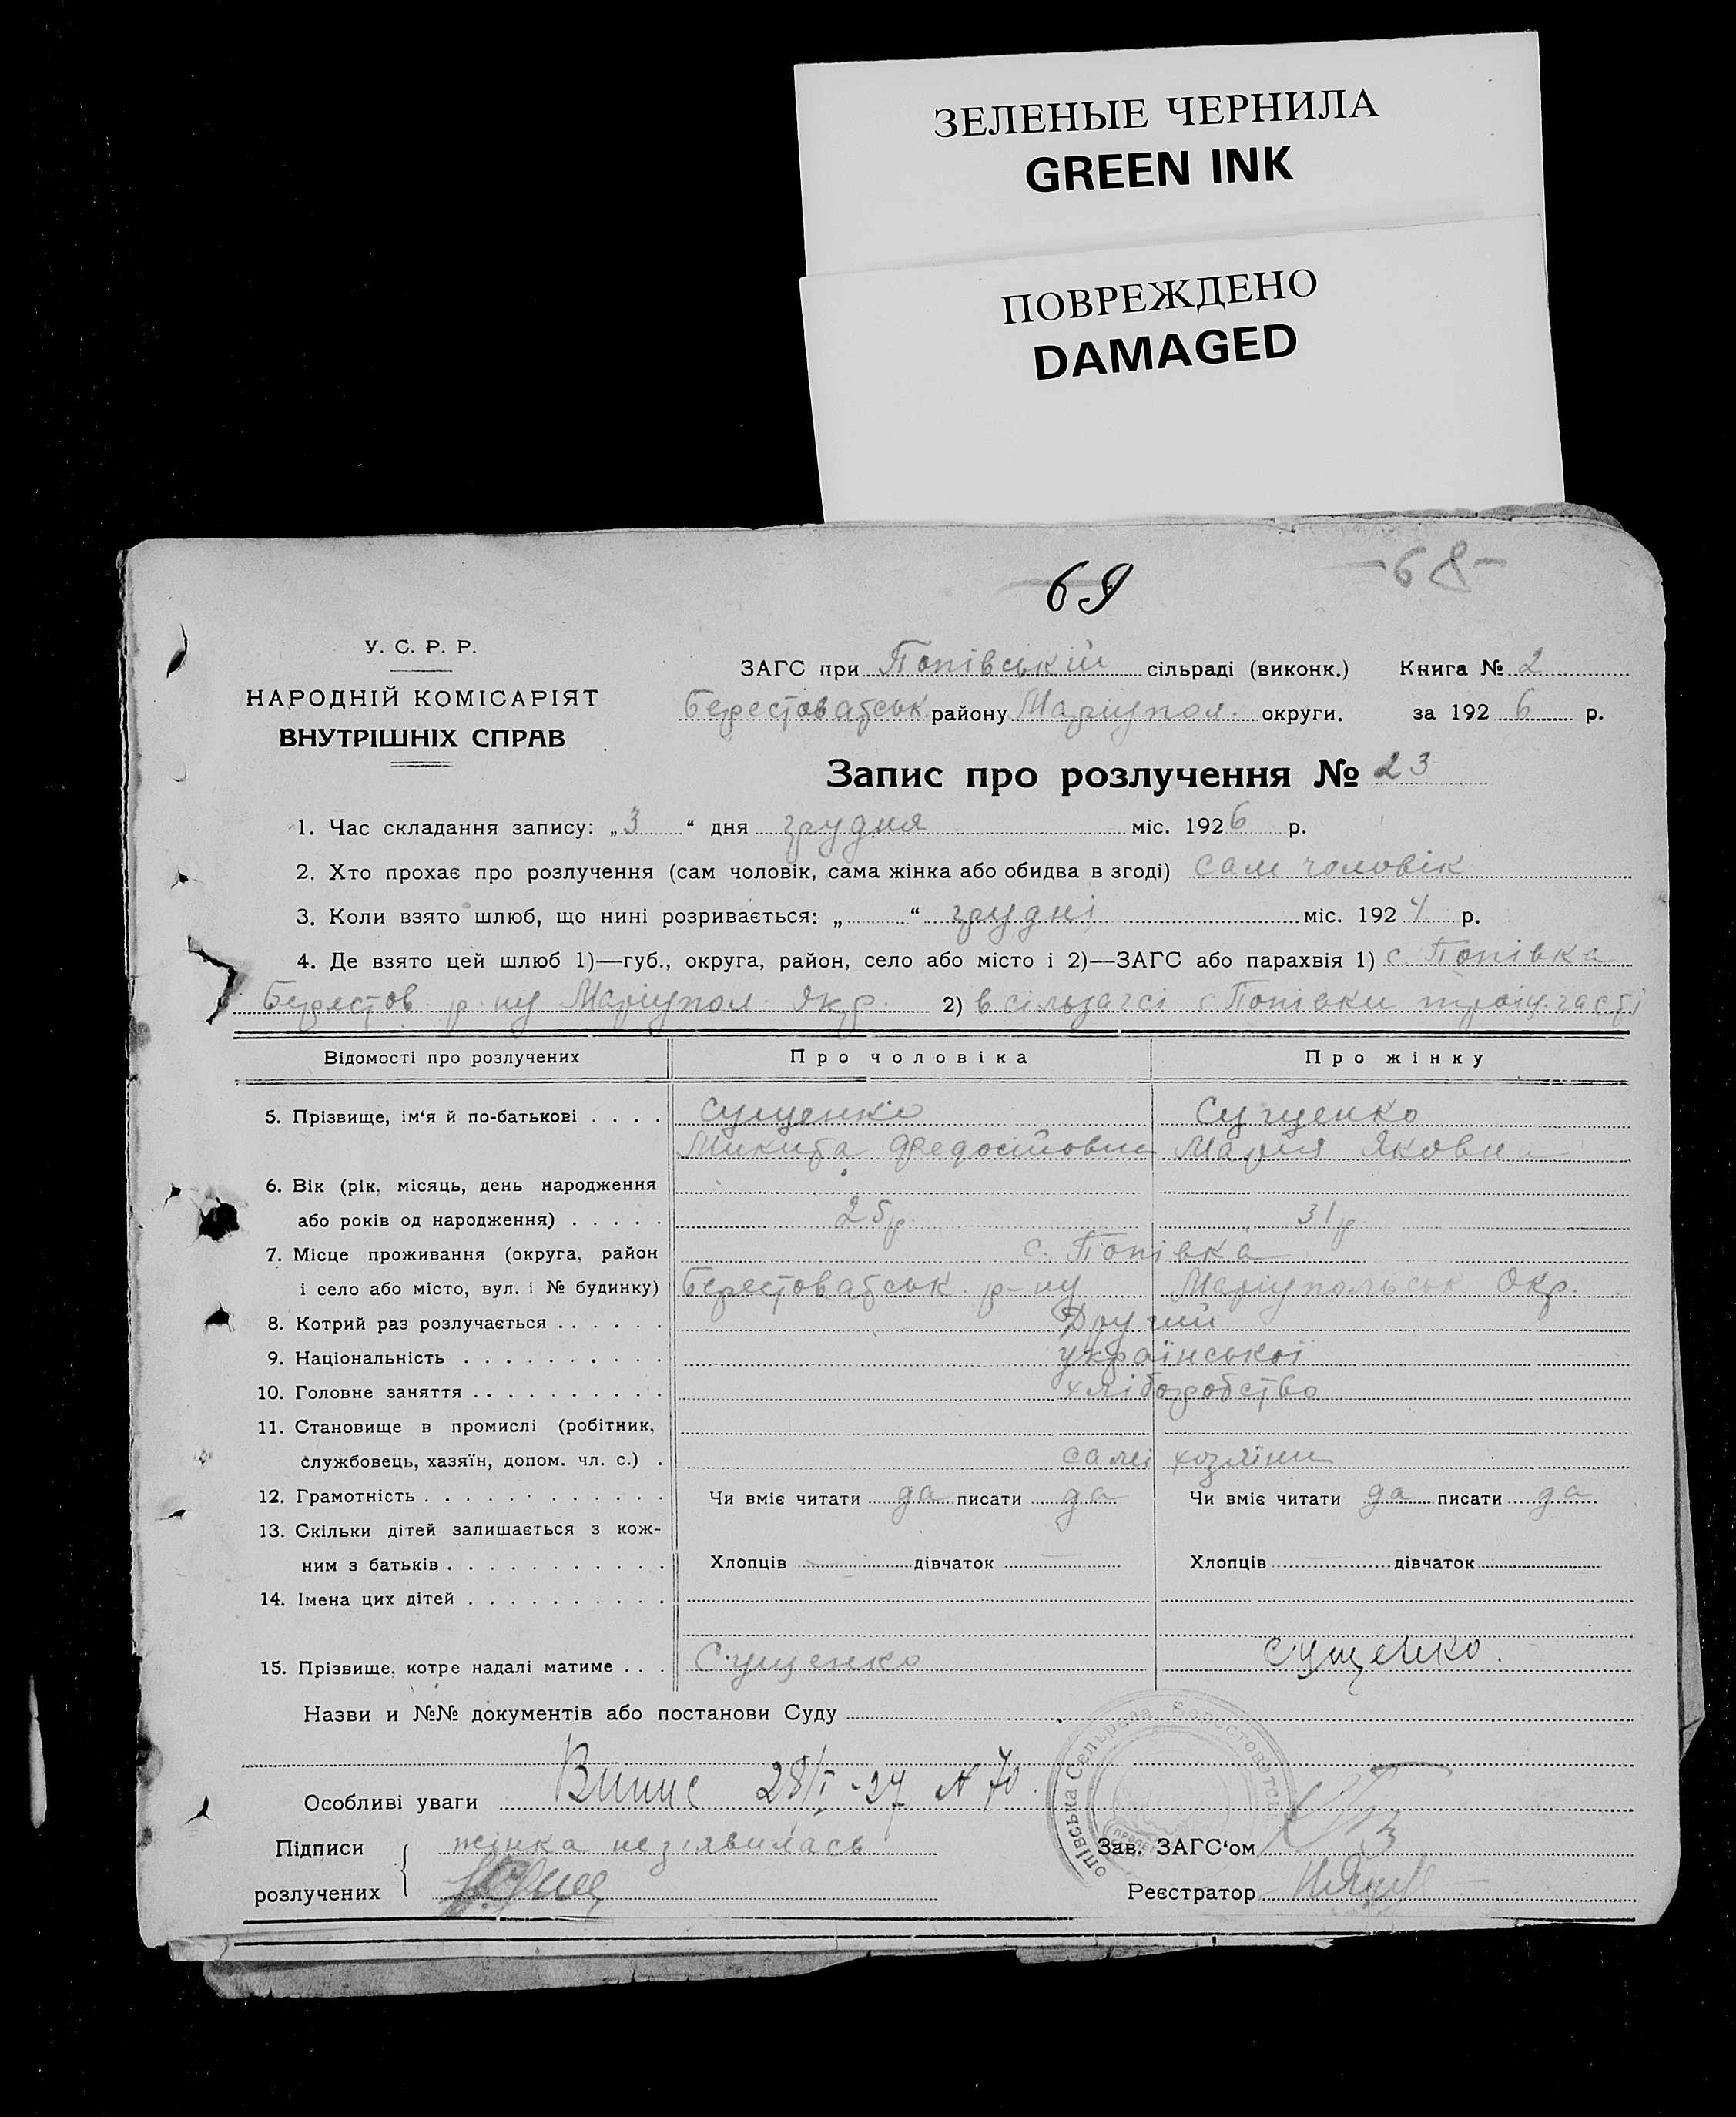 ЗЕЛЕНЫЕ ЧЕРНИЛА
GREEN INK
ПОВРЕЖДЕНО
DAMAGED
69
-68-
У. С. Р. Р.
НАРОДНІЙ КОМІСАРІЯТ
ВНУТРІШНІХ СПРАВ
ЗАГС при Попівській сільраді (виконк.) Книга № 2
Берестоватськ району Маріупол. округи. за 1926 р.
Запис про розлучення № 23
1. Час складання запису: „3“ дня грудня міс. 1926 р.
2. Хто прохає про розлучення (сам чоловік, сама жінка або обидва в згоді) сам чоловік
3. Коли взято шлюб, що нині розривається: „ “ грудні міс. 1924 р.
4. Де взято цей шлюб 1)—губ., округа, район, село або місто і 2)—ЗАГС або парахвія 1) с Попівка
Берестов р-ну Маріупол Окр. 2) в сільзагсі с Попівки
Відомості про розлучених Про чоловіка Про жінку
5. Прізвище, ім‘я й по-батькові . . . . Сущенко Сущенко
Микита Федосійович Мария Яковна
6. Вік (рік, місяць, день народження
або років од народження) . . . . . 25р. 31р
7. Місце проживання (округа, район с. Попівка
і село або місто, вул. і № будинку) Берестоватськ р-ну Маріупольськ Окр.
8. Котрий раз розлучається . . . . . . Другий
9. Національність . . . . . . . . . . української
10. Головне заняття . . . . . . . . . . хліборобство
11. Становище в промислі (робітник,
службовець, хазяїн, допом. чл. с.) . самі хозяїни
12. Грамотність . . . . . . . . . . . . Чи вміє читати да писати да Чи вміє читати да писати да
13. Скільки дітей залишається з кож-
ним з батьків . . . . . . . . . . . Хлопців — дівчаток — Хлопців — дівчаток
14. Імена цих дітей . . . . . . . . . .
15. Прізвище, котре надалі матиме . . . Сущенко Сущенко.
Назви и №№ документів або постанови Суду
Особливі уваги Випис 28/I-27 N 70.
Підписи жінка нез'явилась Зав. ЗАГС‘ом
розлучених Реєстратор
опівська Сельрада Берестоветск